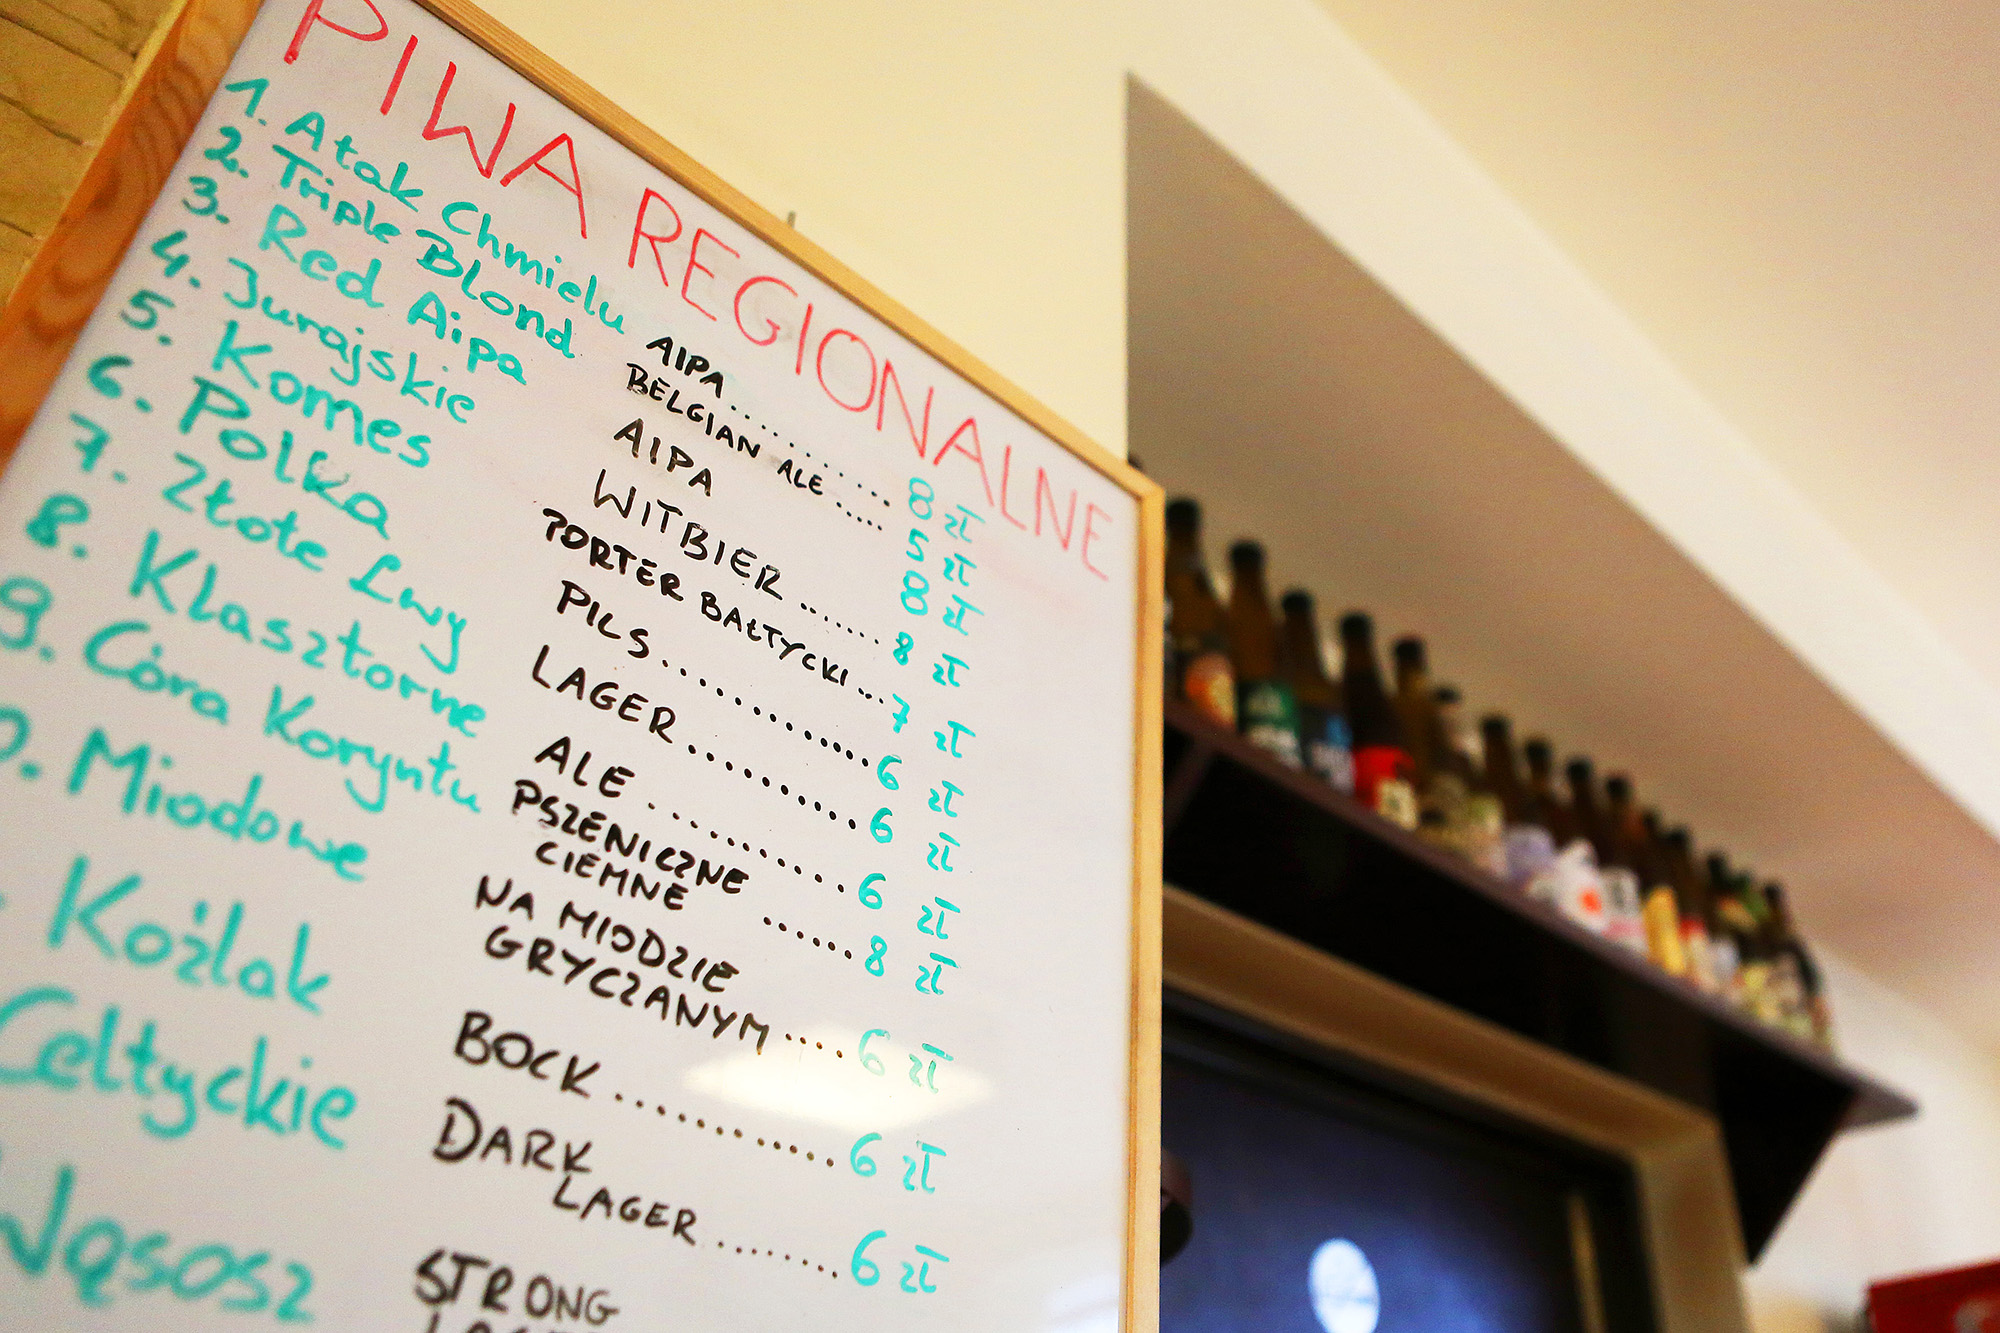 PIWA REGIONALNE
1. Atak Chmielu AIPA .......... 8 zł
2. Triple Blond BELGIAN ALE ..... 5 zł
3. Red Aipa AIPA 8 zł
4. Jurajskie WITBIER ....... 8 zł
5. Komes PORTER BAŁTYCKI ... 7 zł
6. Polka PILS ............. 6 zł
7. Złote Lwy LAGER .......... 6 zł
8. Klasztorne ALE .......... 6 zł
9. Córa Koryntu PSZENICZNE
CIEMNE ...... 8 zł
0. Miodowe NA MIODZIE
GRYCZANYM .... 6 zł
Koźlak BOCK ............ 6 zł
Celtyckie DARK
LAGER ........ 6 zł
Wąsosz STRONG